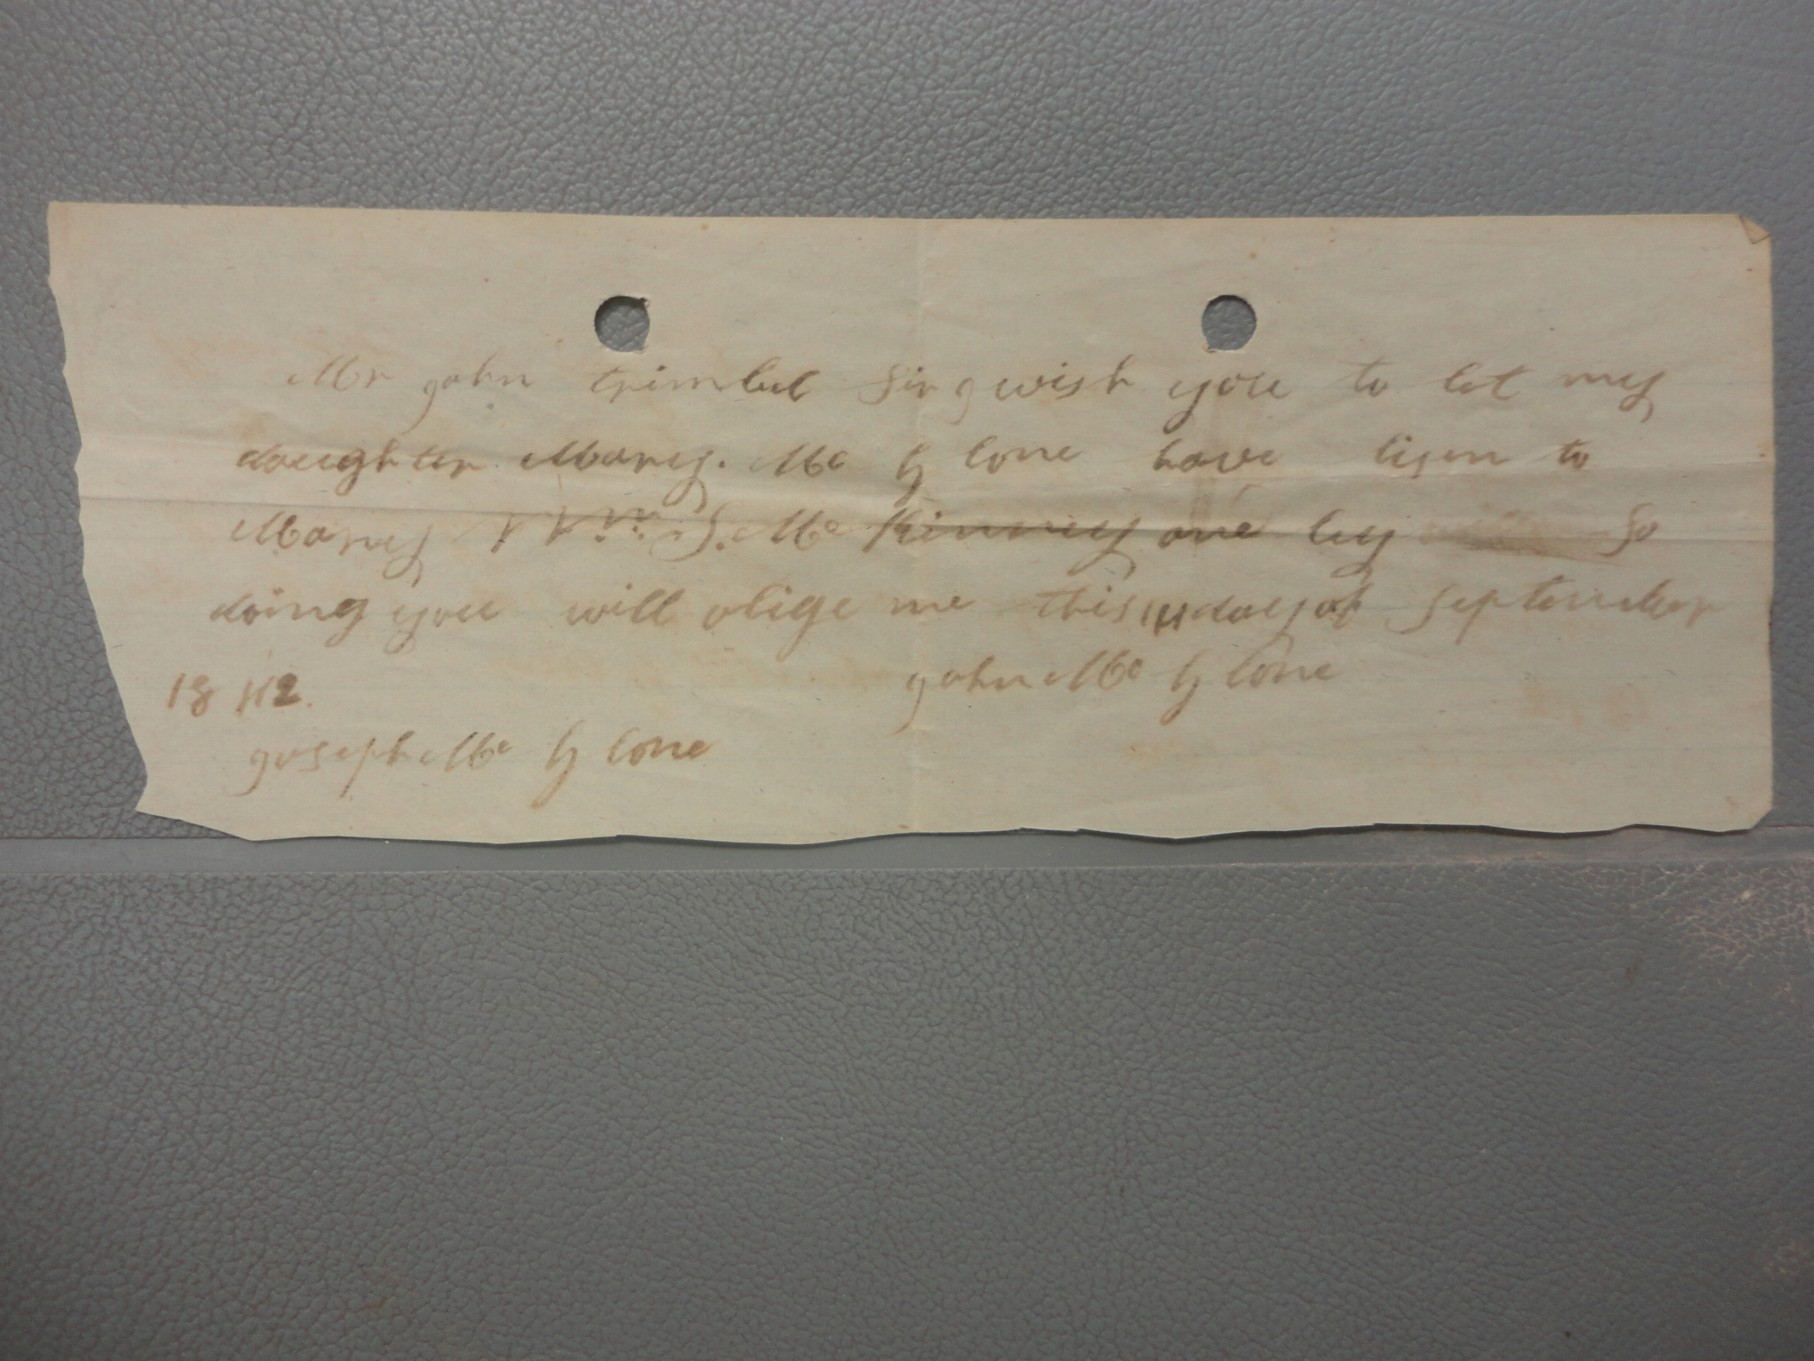 Mr John trimbul Sir I wish you to let my
daughter Mary. Mc G lone have lisen to
Marey Wm. S. Mc Kinney and by So
doing you will olige me this 14 day of September
John Mc G lone
1842.
Joseph Mc G lone